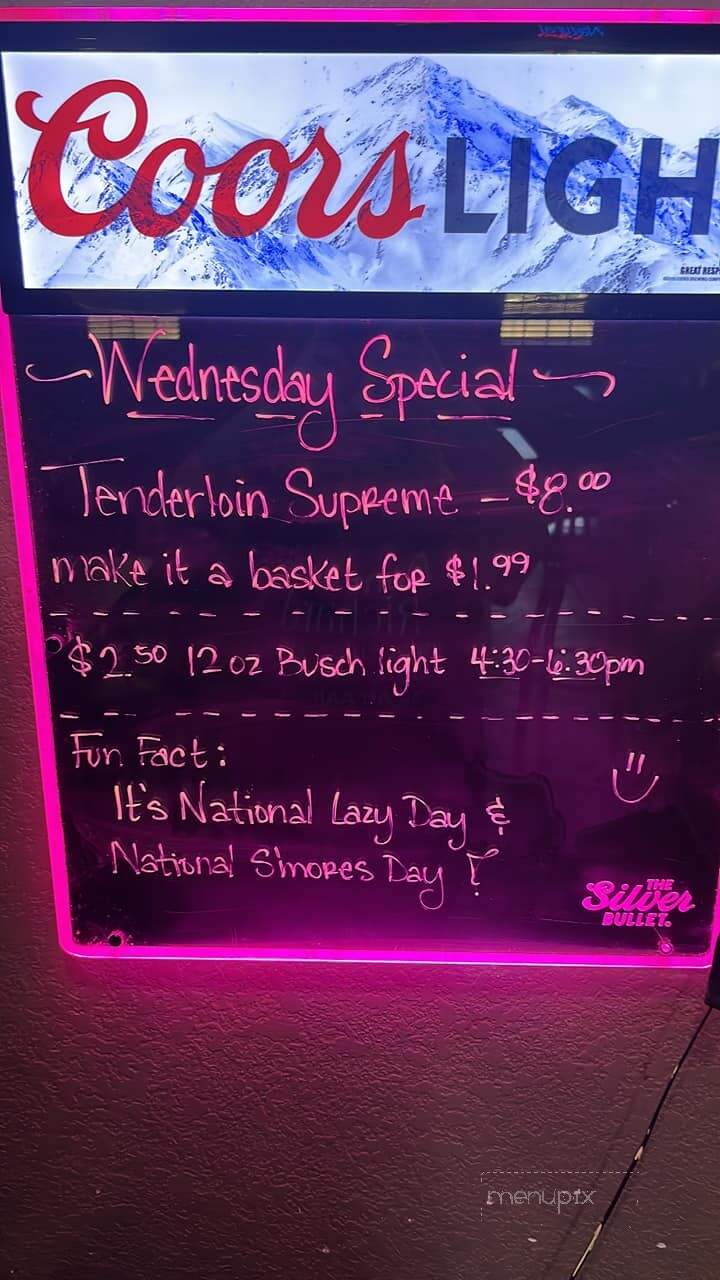 Coors LIGH
GREAT RESP
~Wednesday Special~
Tenderloin Supreme - $8.00
make it a basket for $1.99
$2.50 12oz Busch light 4:30-6:30pm
Fun Fact:
It's National Lazy Day &
National S'mores Day!
THE
Silver
BULLET.
menupix